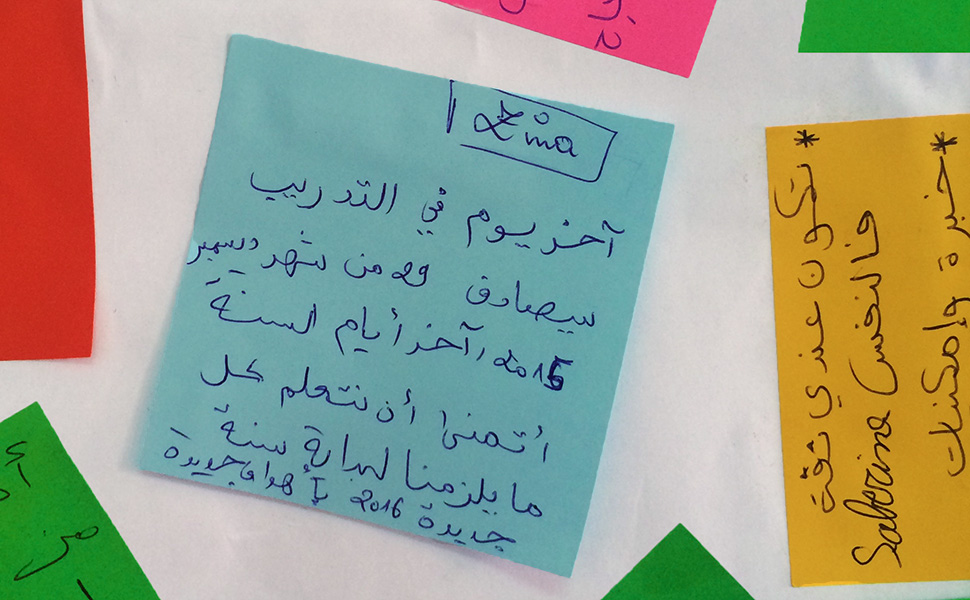 Zina
آخر يوم في التدريب
سيصادق 29 من شهر ديسمبر
2015، آخر أيام السنة
أتمنى أن نتعلم كل
ما يلزمنا لبداية سنة
جديدة 2016 بأهداف جديدة
* تكون عندي ثقة
فالنفس Saberina
* خبرة وإمكنات